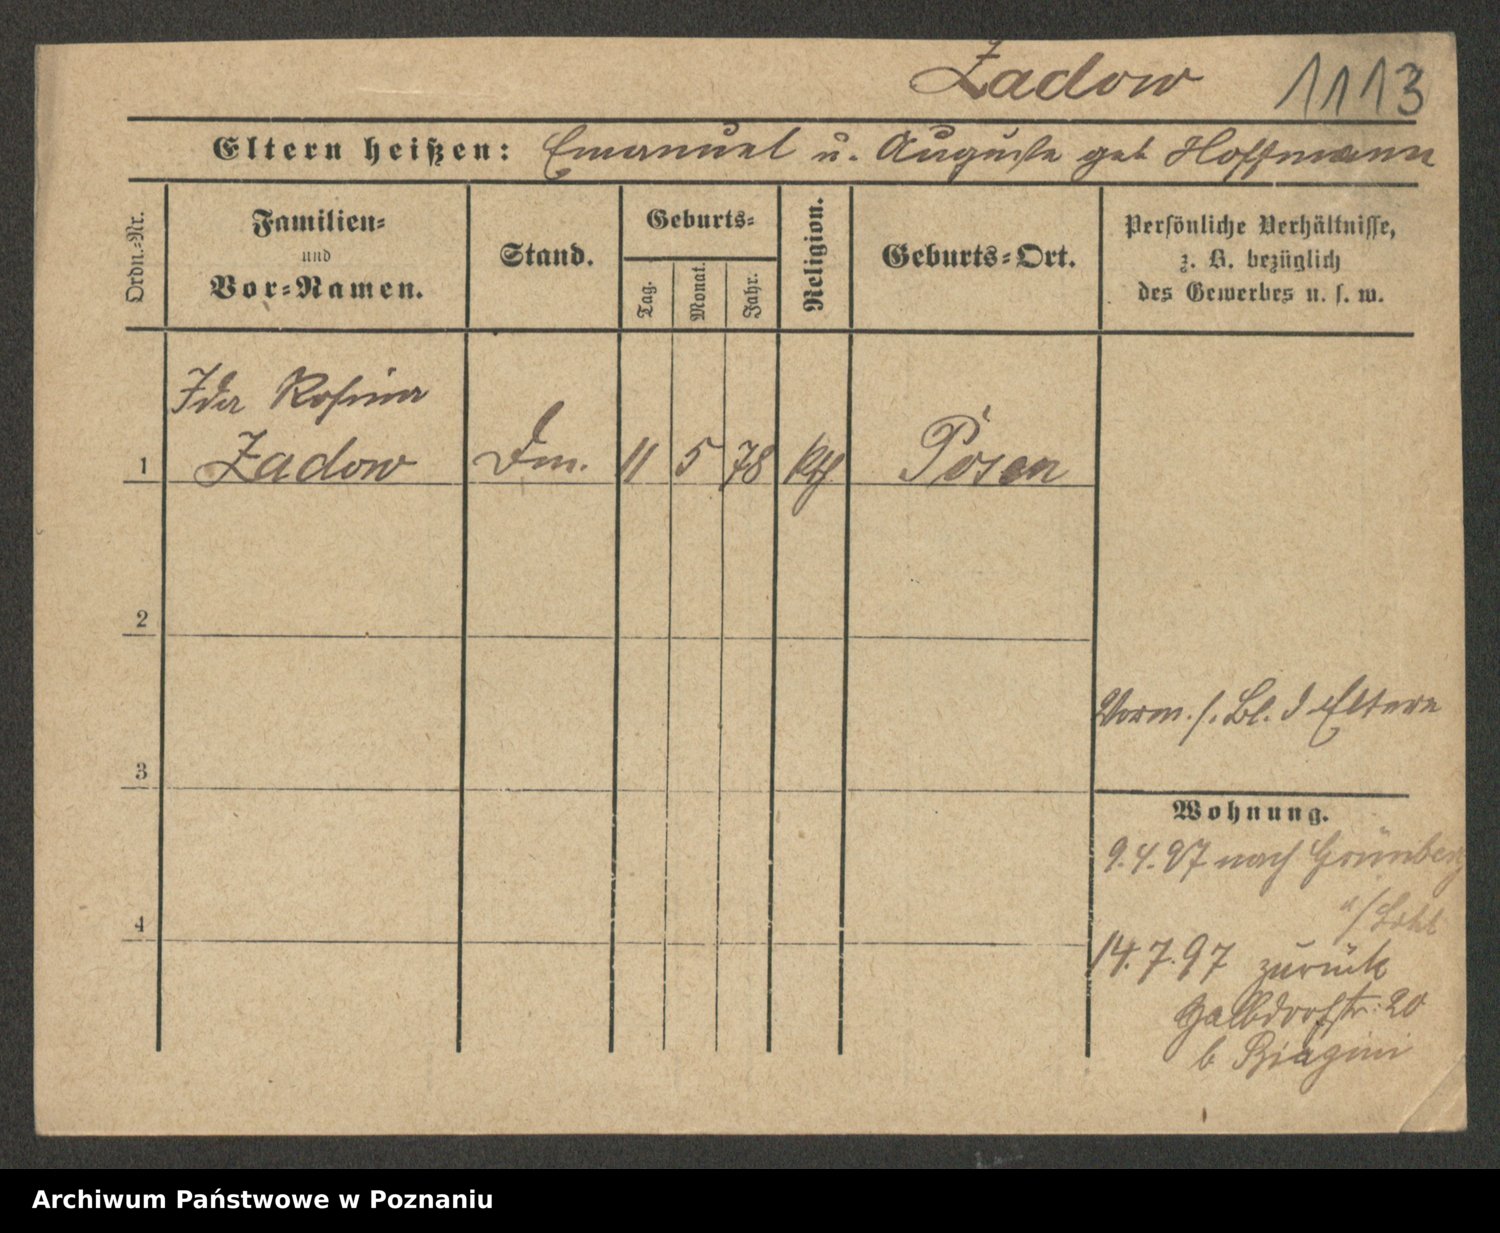 Zadow 1113
Eltern heißen: Emanuel u. Auguste geb Hoffmann
Ordn.-Nr.
Familien-
und
Vor-Namen.
Stand.
Geburts-
Tag.
Monat.
Jahr.
Religion.
Geburts-Ort.
Persönliche Verhältnisse,
z. B. bezüglich
des Gewerbes u. s. w.
Ida Rosina
1 Zadow 11 5 78 Kth Posen
2
Vorm. s. Bl. d Eltern
3
Wohnung.
9.4.97 nach Grünberg
4
14.7.97 zurück
20
b Biagini
Archiwum Państwowe w Poznaniu